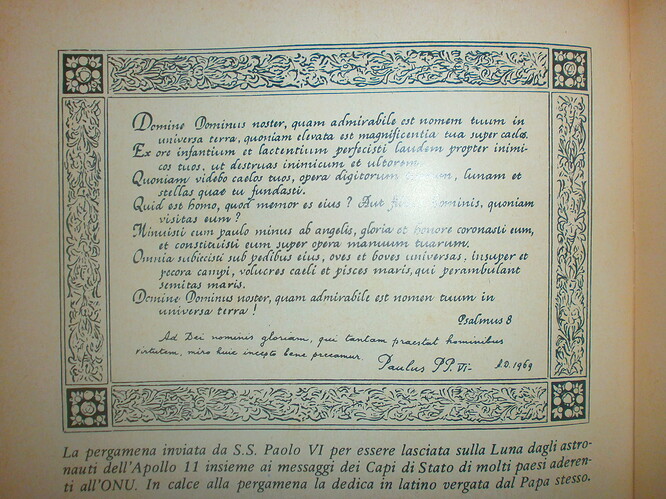 Domine Dominus noster, quam admirabile est nomem tuum in
universa terra, quoniam elevata est magnificentia tua super caelos.
Ex ore infantium et lactentium perfecisti laudem propter inimi-
cos tuos, ut destruas inimicum et ultorem.
Quoniam videbo caelos tuos, opera digitorum lunam et
stellas quae tu fundasti.
Quid est homo, quod memor es eius? Aut hominis, quoniam
visitas eum?
Minuisti eum paulo minus ab angelis, gloria et honore coronasti eum,
et constituisti eum super opera manuum tuarum.
Omnia subiecisti sub pedibus eius, oves et boves universas, insuper et
pecora campi, volucres caeli et pisces maris, qui perambulant
semitas maris.
Domine Dominus noster, quam admirabile est nomen tuum in
universa terra!
Psalmus 8
Ad Dei nominis gloriam, qui tantam praestat hominibus
virtutem, miro huic incepto bene precamur.
Paulus PP. VI- A.D. 1969
La pergamena inviata da S.S. Paolo VI per essere lasciata sulla Luna dagli astro-
nauti dell'Apollo 11 insieme ai messaggi dei Capi di Stato di molti paesi aderen-
ti all'ONU. In calce alla pergamena la dedica in latino vergata dal Papa stesso.